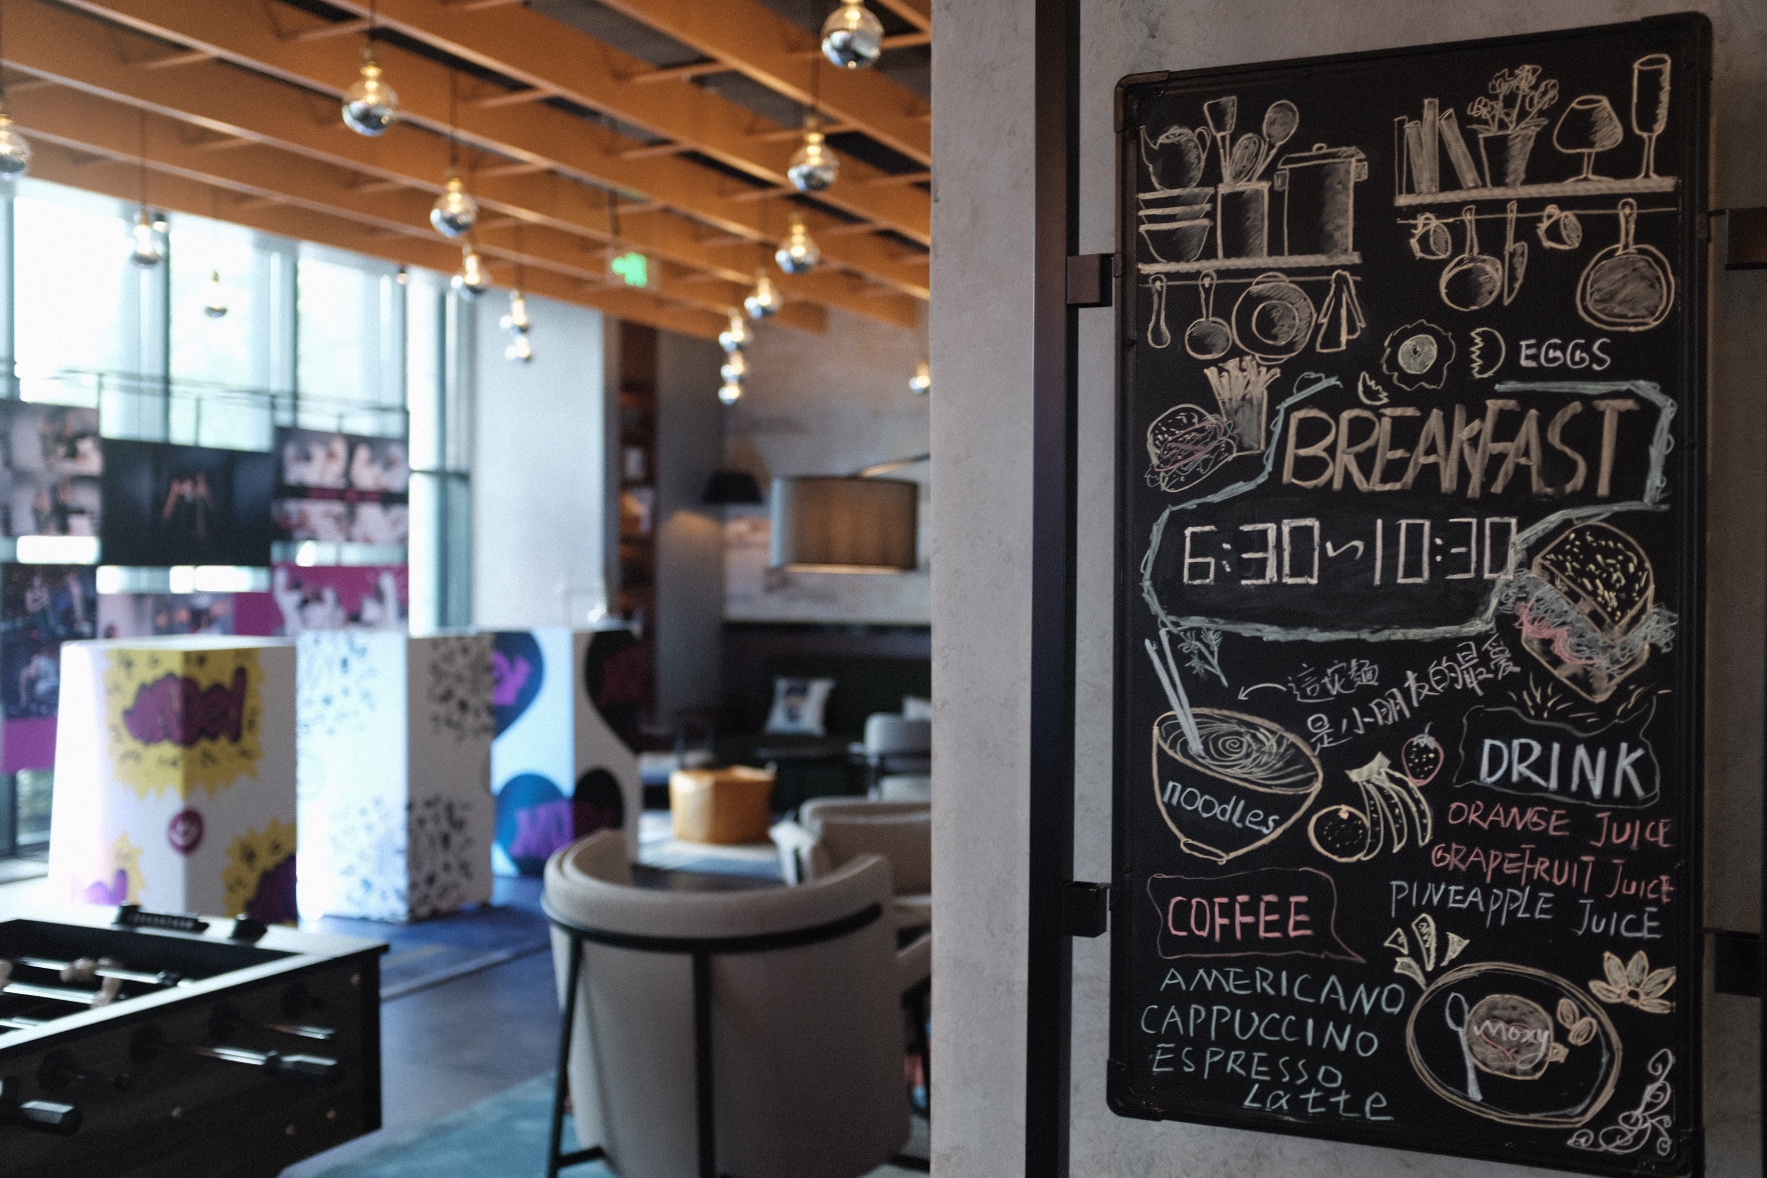 EGGS
BREAKFAST
6:30~10:30
這碗麵
是小朋友的最愛
noodles
DRINK
ORANGE JUICE
GRAPEFRUIT JUICE
PINEAPPLE JUICE
COFFEE
AMERICANO
CAPPUCCINO
ESPRESSO
Latte
moxy